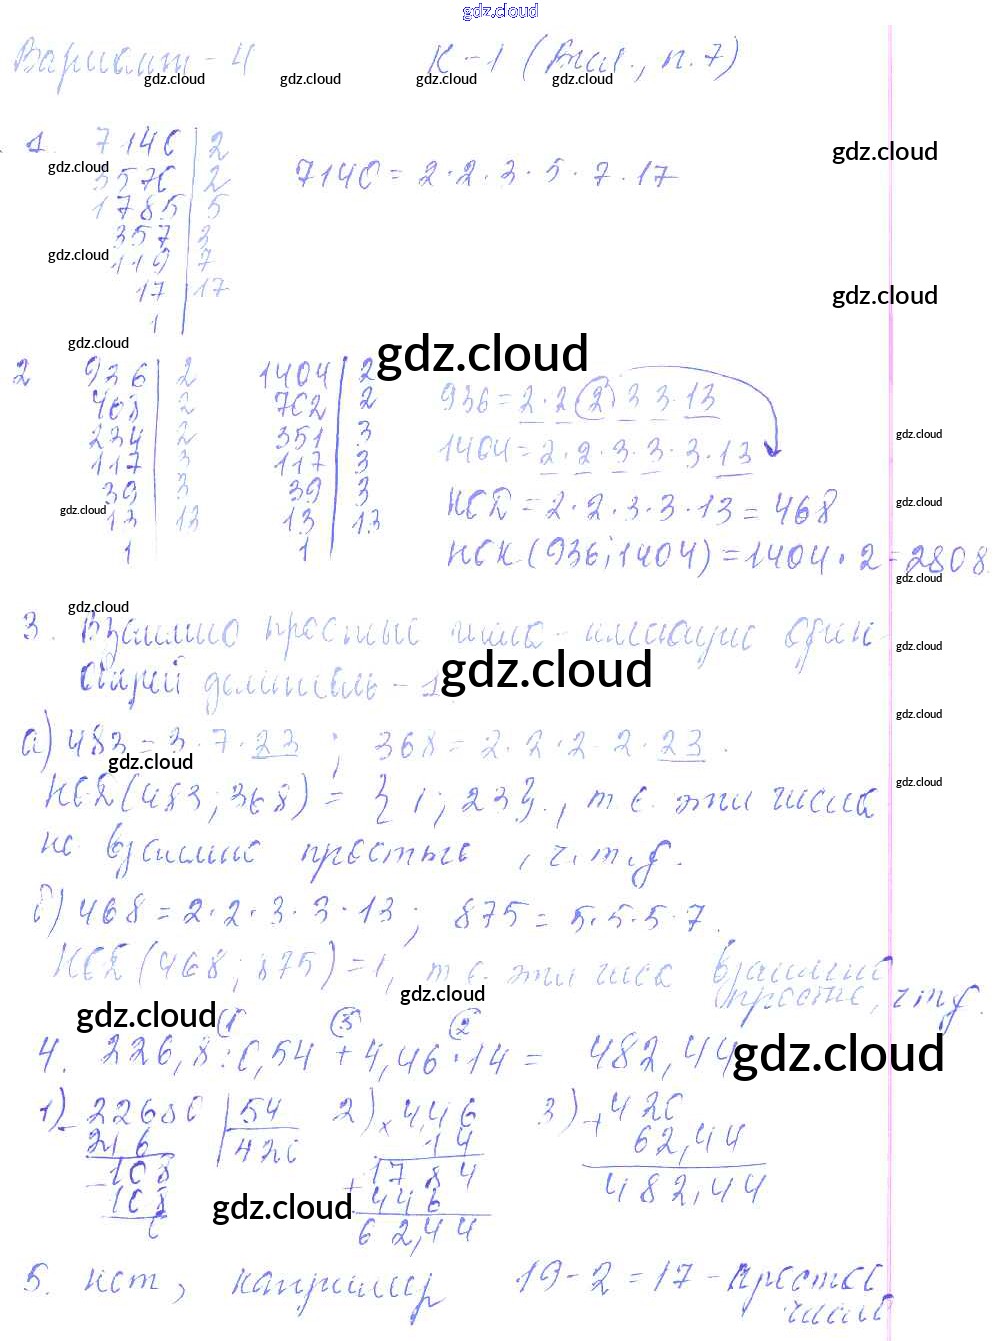 gdz.cloud
Вариант - 4 К-1 (Вил., п.7)
gdz.cloud gdz.cloud gdz.cloud gdz.cloud
1. 7140 | 2
gdz.cloud
gdz.cloud
3570 | 2 7140 = 2·2·3·5·7·17
1785 | 5
357 | 3
gdz.cloud
119 | 7
17 | 17
gdz.cloud
1
gdz.cloud
gdz.cloud
2 936 | 2 1404 | 2
468 | 2 702 | 2 936 = 2·2·2·3·3·13
234 | 2 351 | 3
gdz.cloud
117 | 3 117 | 3 1404 = 2·2·3·3·3·13
39 | 3 39 | 3 НОД = 2·2·3·3·13 = 468
gdz.cloud
gdz.cloud
13 | 13 13 | 13
1 1 НОК (936; 1404) = 1404·2 = 2808
gdz.cloud
gdz.cloud
3. Взаимно простые числа - имеющие один
gdz.cloud
общий делитель - 1
gdz.cloud
gdz.cloud
а) 483 = 3·7·23 ; 368 = 2·2·2·2·23.
gdz.cloud
gdz.cloud
НОД (483; 368) = {1; 23}., т.е. эти числа
не взаимно простые, ч.т.д.
б) 468 = 2·2·3·3·13; 875 = 5·5·5·7.
НОД (468; 875) = 1, т.е. эти числа взаимно
простые, ч.т.д.
gdz.cloud
gdz.cloud
1 3 2
4. 226,8 : 0,54 + 4,46 · 14 = 482,44
gdz.cloud
1) 22680 | 54 2) × 4,46 3) + 420
- 216 | 420 14 62,44
- 108 + 17 84 482,44
108 446
gdz.cloud
0 62,44
5. нет, например 19 - 2 = 17 - простое
число